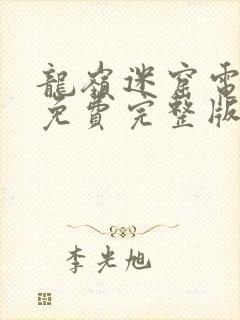 龍嶺迷窟電
免費完整版
李光旭